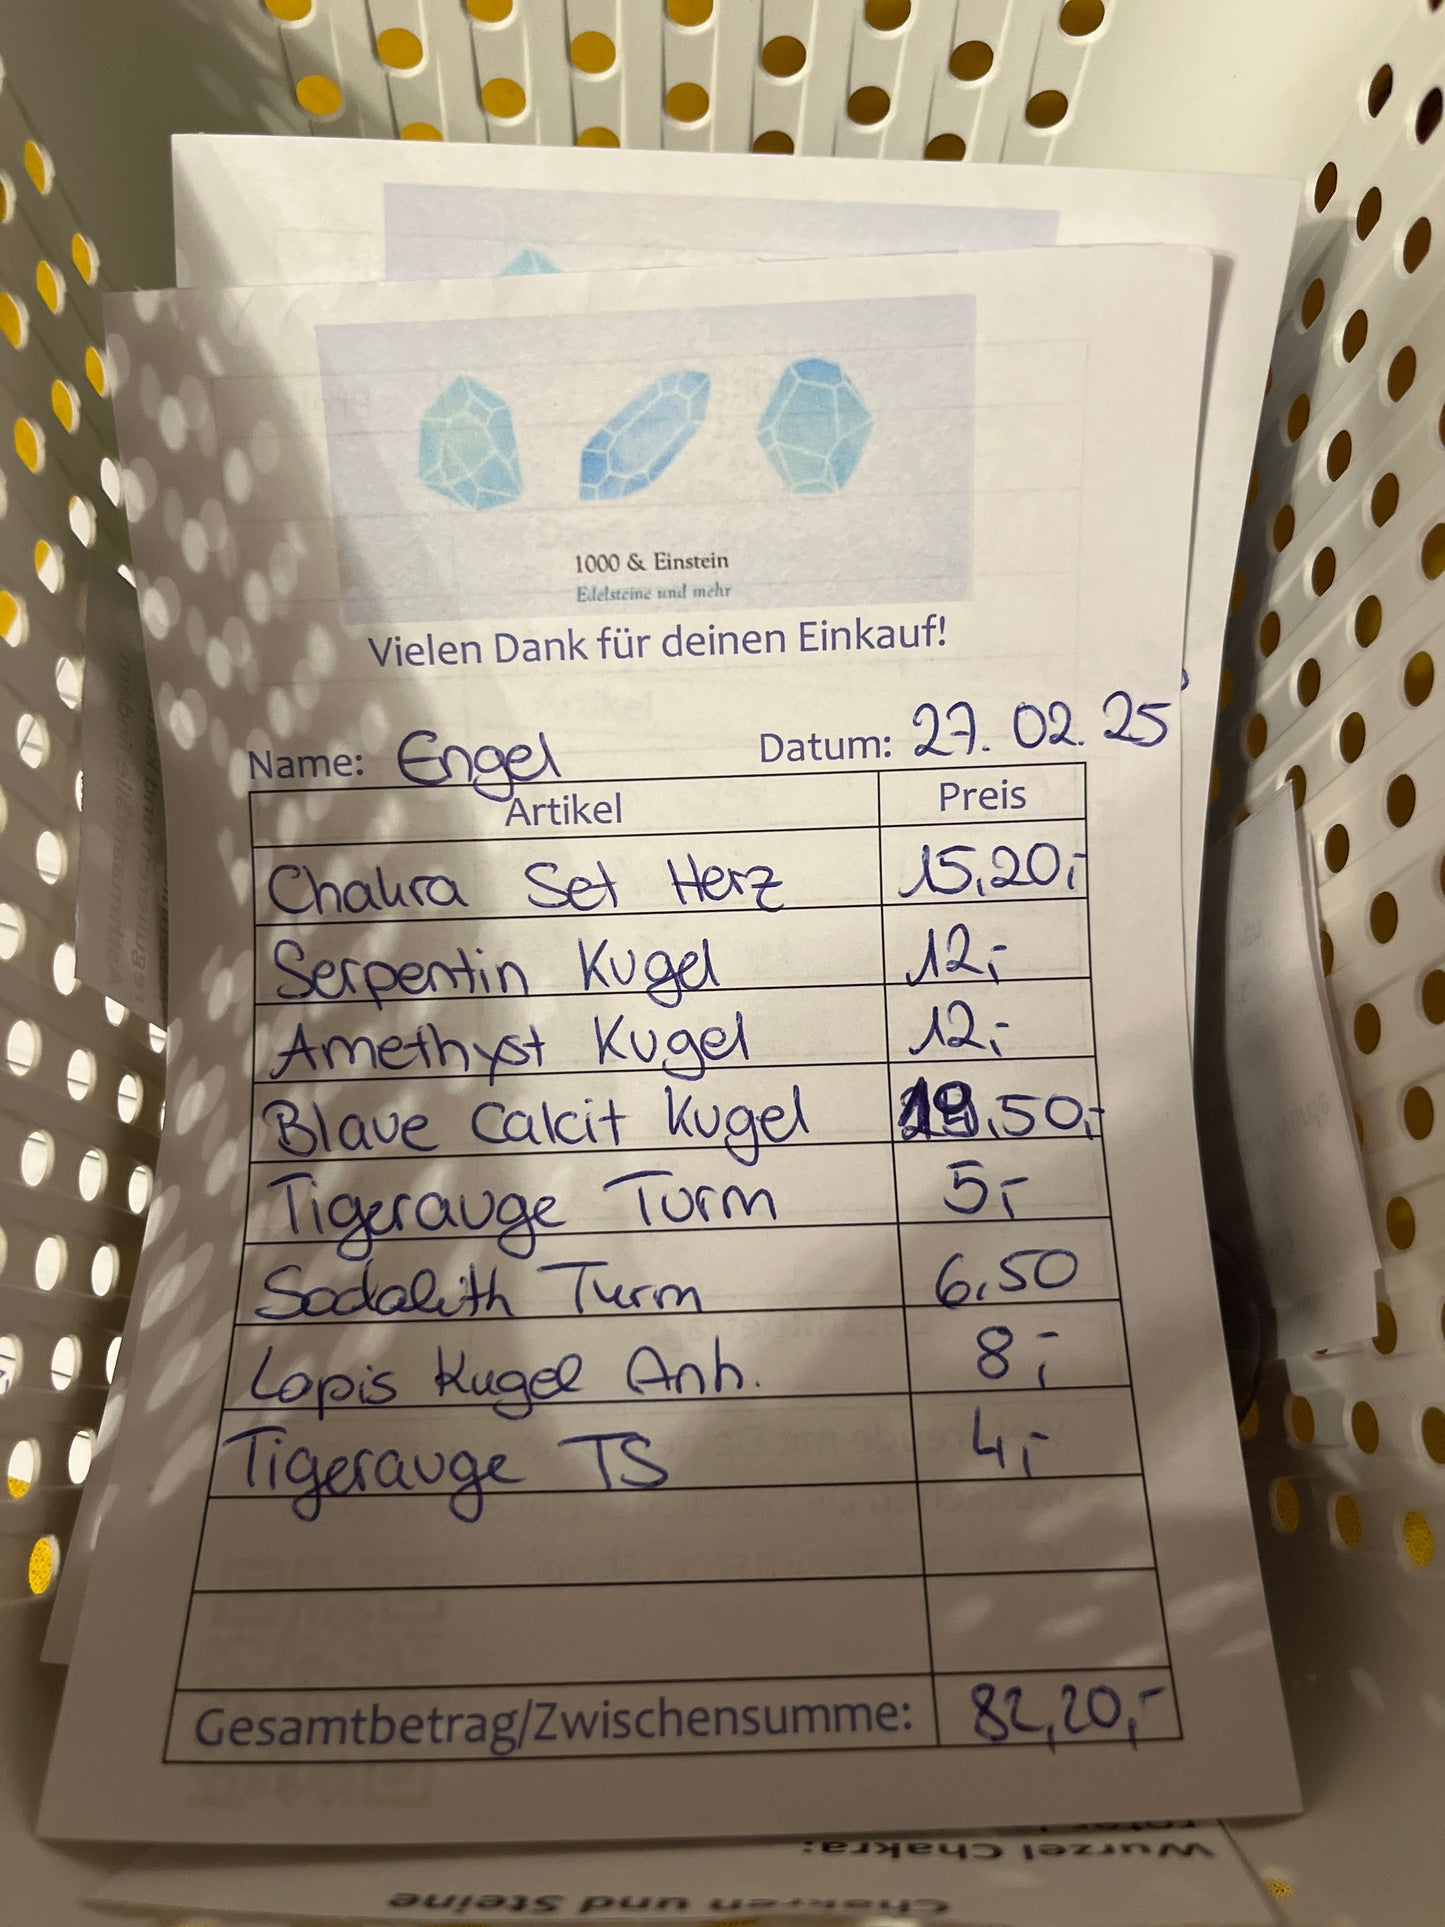 1000 & Einstein
Edelsteine und mehr
Vielen Dank für deinen Einkauf!
Name: Engel Datum: 27. 02. 25
Artikel Preis
Chakra Set Herz 15,20,-
Serpentin Kugel 12,-
Amethyst Kugel 12,-
Blaue Calcit Kugel 19,50,-
Tigerauge Turm 5,-
Sodalith Turm 6,50
Lapis Kugel Anh. 8,-
Tigerauge TS 4,-
Gesamtbetrag/Zwischensumme: 82,20,-
Wurzel Chakra:
Chakren und Steine